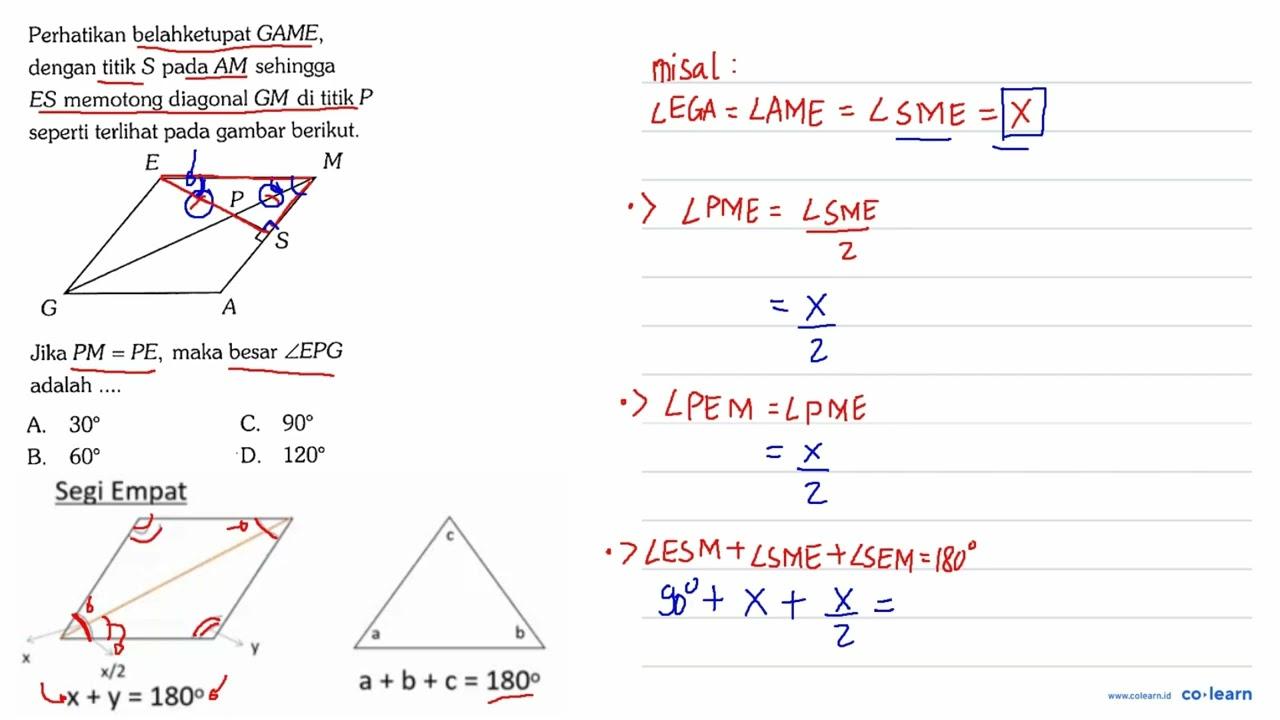 Perhatikan belahketupat GAME,
dengan titik S pada AM sehingga
ES memotong diagonal GM di titik P
seperti terlihat pada gambar berikut.
E
M
P
S
G
A
Jika PM = PE, maka besar ∠EPG
adalah ....
A. 30° C. 90°
B. 60° D. 120°
Segi Empat
x
x/2
y
x + y = 180°
c
a
b
a + b + c = 180°
misal :
∠EGA = ∠AME = ∠SME = x
•> ∠PME = ∠SME
2
= x
2
•> ∠PEM = ∠PME
= x
2
•> ∠ESM + ∠SME + ∠SEM = 180°
90° + x + x =
2
www.colearn.id co·learn